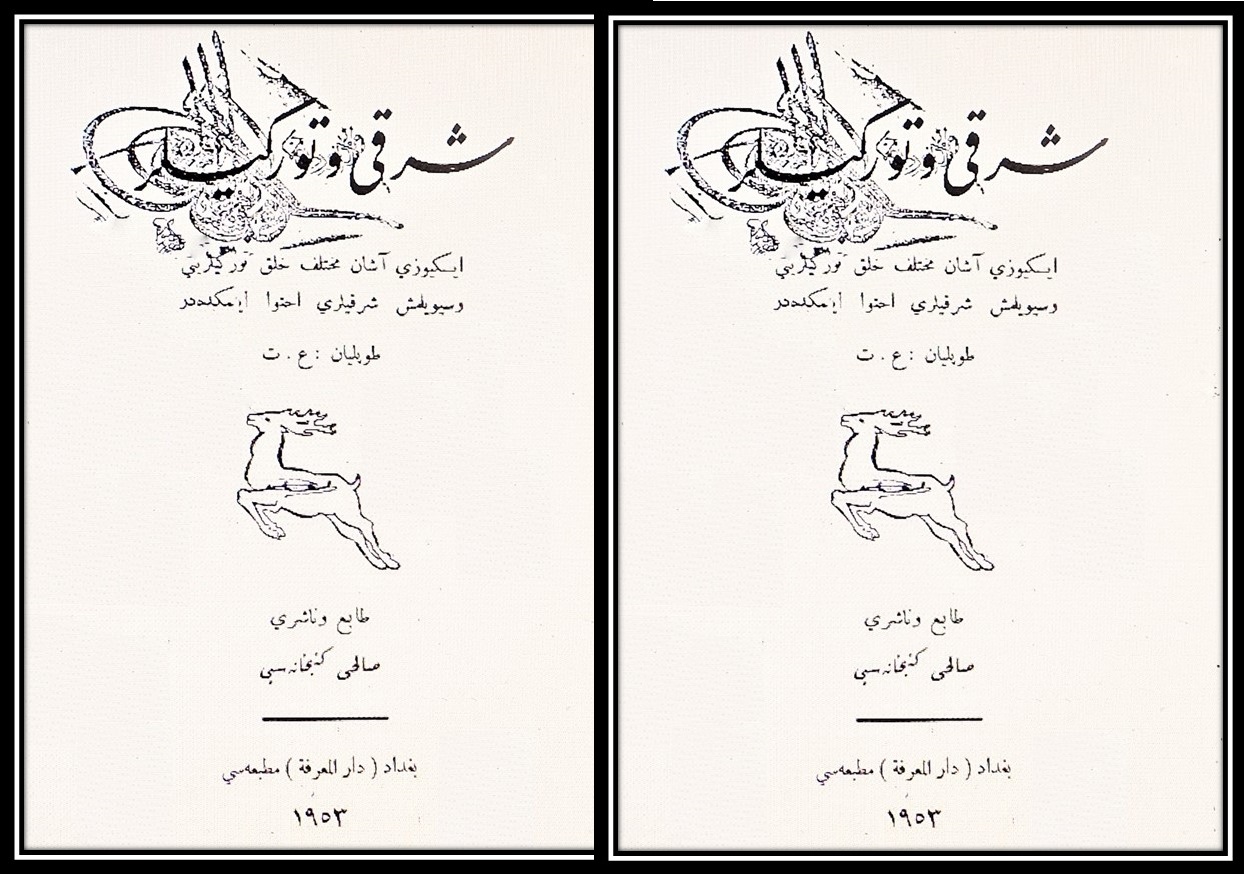 شرقی و تورکیلر
ايكيوزي آشان مختلف خلق توركيلريي
وسيويلمش شرقيلري احتوا أيتمكده در
طوپليان : ع . ت
طابع وناشري
صالحي كتبخانه سي
بغداد ( دار المعرفة ) مطبعه سي
١٩٥٣
شرقی و تورکیلر
ايكيوزي آشان مختلف خلق توركيلريي
وسيويلمش شرقيلري احتوا أيتمكده در
طوپليان : ع . ت
طابع وناشري
صالحي كتبخانه سي
بغداد ( دار المعرفة ) مطبعه سي
١٩٥٣